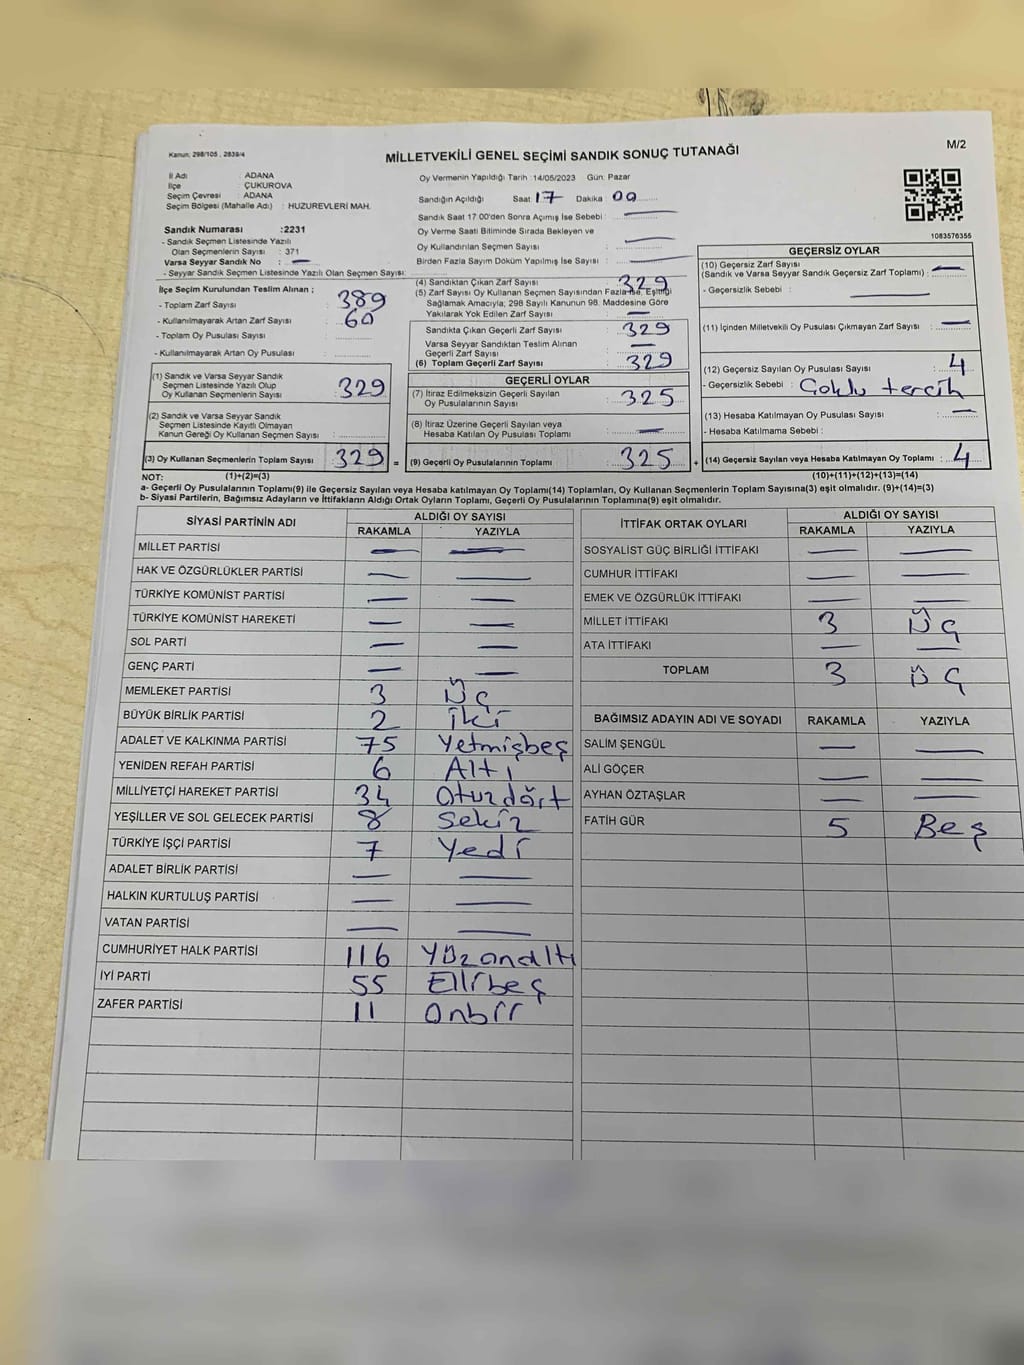 Kanun: 298/105 , 2839/4
MİLLETVEKİLİ GENEL SEÇİMİ SANDIK SONUÇ TUTANAĞI
M/2
İl Adı : ADANA
İlçe : ÇUKUROVA
Seçim Çevresi : ADANA
Seçim Bölgesi (Mahalle Adı) : HUZUREVLERİ MAH.
Oy Vermenin Yapıldığı Tarih :14/05/2023 Gün: Pazar
Sandığın Açıldığı Saat 17 Dakika 00
Sandık Saat 17:00'den Sonra Açımış İse Sebebi :
Oy Verme Saati Bitiminde Sırada Bekleyen ve
Oy Kullandırılan Seçmen Sayısı :
Birden Fazla Sayım Döküm Yapılmış İse Sayısı :
1083576355
Sandık Numarası :2231
- Sandık Seçmen Listesinde Yazılı
Olan Seçmenlerin Sayısı : 371
Varsa Seyyar Sandık No : —
- Seyyar Sandık Seçmen Listesinde Yazılı Olan Seçmen Sayısı:
İlçe Seçim Kurulundan Teslim Alınan ;
- Toplam Zarf Sayısı : 389
- Kullanılmayarak Artan Zarf Sayısı : 60
- Toplam Oy Pusulası Sayısı :
- Kullanılmayarak Artan Oy Pusulası :
(1) Sandık ve Varsa Seyyar Sandık
Seçmen Listesinde Yazılı Olup
Oy Kullanan Seçmenlerin Sayısı : 329
(2) Sandık ve Varsa Seyyar Sandık
Seçmen Listesinde Kayıtlı Olmayan
Kanun Gereği Oy Kullanan Seçmen Sayısı :
(3) Oy Kullanan Seçmenlerin Toplam Sayısı : 329 =
(4) Sandıktan Çıkan Zarf Sayısı : 329
(5) Zarf Sayısı Oy Kullanan Seçmen Sayısından Fazla ise, Eşitliği
Sağlamak Amacıyla; 298 Sayılı Kanunun 98. Maddesine Göre
Yakılarak Yok Edilen Zarf Sayısı : —
Sandıkta Çıkan Geçerli Zarf Sayısı : 329
Varsa Seyyar Sandıktan Teslim Alınan
Geçerli Zarf Sayısı : —
(6) Toplam Geçerli Zarf Sayısı : 329
GEÇERLİ OYLAR
(7) İtiraz Edilmeksizin Geçerli Sayılan
Oy Pusulalarının Sayısı : 325
(8) İtiraz Üzerine Geçerli Sayılan veya
Hesaba Katılan Oy Pusulası Toplamı : —
(9) Geçerli Oy Pusulalarının Toplamı : 325 +
GEÇERSİZ OYLAR
(10) Geçersiz Zarf Sayısı
(Sandık ve Varsa Seyyar Sandık Geçersiz Zarf Toplamı) : —
- Geçersizlik Sebebi : —
(11) İçinden Milletvekili Oy Pusulası Çıkmayan Zarf Sayısı : —
(12) Geçersiz Sayılan Oy Pusulası Sayısı : 4
- Geçersizlik Sebebi : Çoklu tercih
(13) Hesaba Katılmayan Oy Pusulası Sayısı : —
- Hesaba Katılmama Sebebi :
(14) Geçersiz Sayılan veya Hesaba Katılmayan Oy Toplamı : 4
NOT: (1)+(2)=(3) (10)+(11)+(12)+(13)=(14)
a- Geçerli Oy Pusulaları Toplamı(9) ile Geçersiz Sayılan veya Hesaba katılmayan Oy Toplamı(14) Toplamları, Oy Kullanan Seçmenlerin Toplam Sayısına(3) eşit olmalıdır. (9)+(14)=(3)
b- Siyasi Partilerin, Bağımsız Adayların ve İttifakların Aldığı Ortak Oyların Toplamı, Geçerli Oy Pusulalarının Toplamına(9) eşit olmalıdır.
SİYASİ PARTİNİN ADI ALDIĞI OY SAYISI
RAKAMLA YAZIYLA
MİLLET PARTİSİ — —
HAK VE ÖZGÜRLÜKLER PARTİSİ — —
TÜRKİYE KOMÜNİST PARTİSİ — —
TÜRKİYE KOMÜNİST HAREKETİ — —
SOL PARTİ — —
GENÇ PARTİ — —
MEMLEKET PARTİSİ 3 Üç
BÜYÜK BİRLİK PARTİSİ 2 İki
ADALET VE KALKINMA PARTİSİ 75 Yetmişbeş
YENİDEN REFAH PARTİSİ 6 Altı
MİLLİYETÇİ HAREKET PARTİSİ 34 Otuzdört
YEŞİLLER VE SOL GELECEK PARTİSİ 8 Sekiz
TÜRKİYE İŞÇİ PARTİSİ 7 Yedi
ADALET BİRLİK PARTİSİ — —
HALKIN KURTULUŞ PARTİSİ — —
VATAN PARTİSİ — —
CUMHURİYET HALK PARTİSİ 116 Yüzonaltı
İYİ PARTİ 55 Ellibeş
ZAFER PARTİSİ 11 Onbir
İTTİFAK ORTAK OYLARI ALDIĞI OY SAYISI
RAKAMLA YAZIYLA
SOSYALİST GÜÇ BİRLİĞİ İTTİFAKI — —
CUMHUR İTTİFAKI — —
EMEK VE ÖZGÜRLÜK İTTİFAKI — —
MİLLET İTTİFAKI 3 Üç
ATA İTTİFAKI — —
TOPLAM 3 Üç
BAĞIMSIZ ADAYIN ADI VE SOYADI RAKAMLA YAZIYLA
SALİM ŞENGÜL — —
ALİ GÖÇER — —
AYHAN ÖZTAŞLAR — —
FATİH GÜR 5 Beş